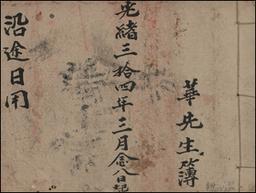 華先生簿
光緒三拾四年三月念八日記
沿途日用